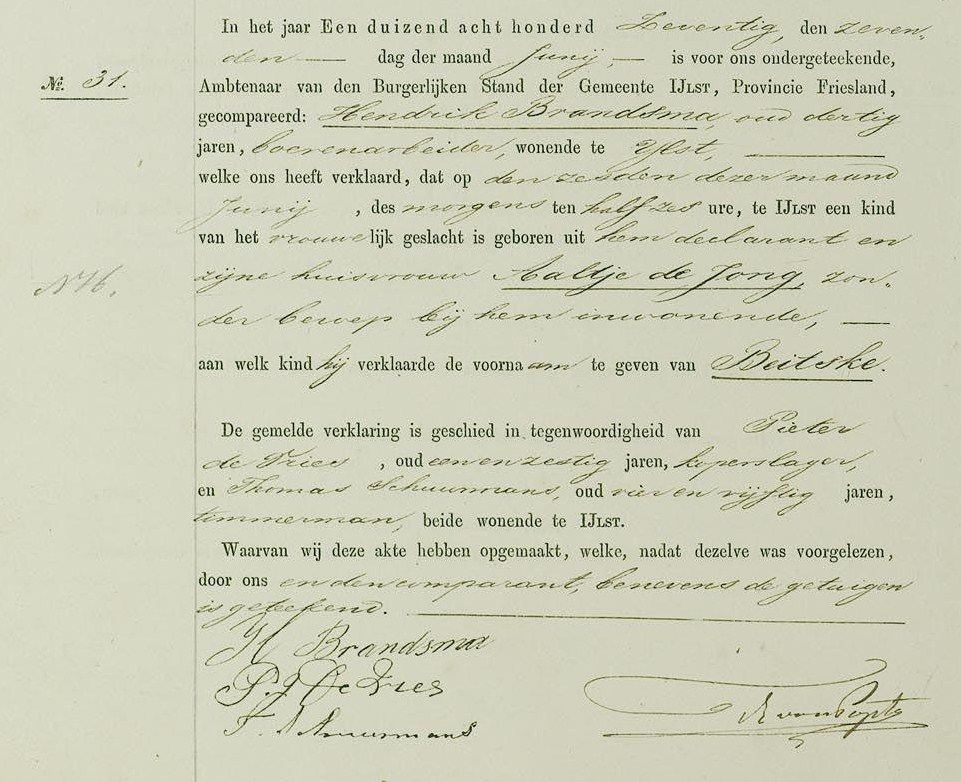 In het jaar Een duizend acht honderd Zeventig, den zeven-
den — dag der maand Junij, — is voor ons ondergeteekende,
No. 31.
Ambtenaar van den Burgerlijken Stand der Gemeente IJLST, Provincie Friesland,
gecompareerd: Hendrik Brandsma, oud dertig
jaren, boerenarbeider, wonende te Ylst, —
welke ons heeft verklaard, dat op den zesden dezer maand
Junij , des morgens ten half zes ure, te IJLST een kind
van het vrouwelijk geslacht is geboren uit hem declarant en
zijne huisvrouw Aaltje de Jong, zon-
der beroep bij hem inwonende, —
aan welk kind hij verklaarde de voornaam te geven van Beitske.
De gemelde verklaring is geschied in tegenwoordigheid van Pieter
de Vries , oud een en zestig jaren, koperslager,
en Thomas Schuurmans, oud vier en vijftig jaren,
timmerman, beide wonende te IJLST.
Waarvan wij deze akte hebben opgemaakt, welke, nadat dezelve was voorgelezen,
door ons en den comparant, benevens de getuigen
is geteekend. —
H Brandsma
P. J De Vries
T. Schuurmans